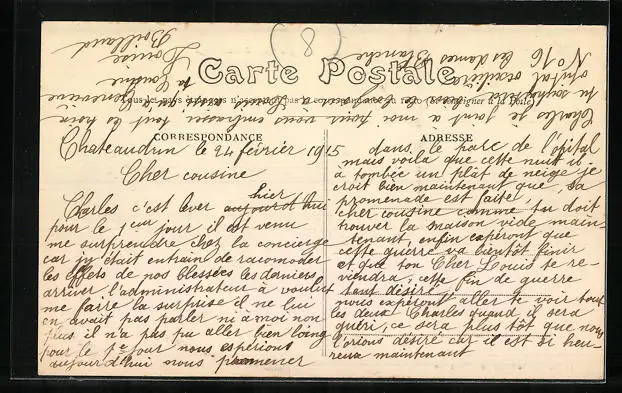 Carte Postale
CORRESPONDANCE
ADRESSE
Chateaudun le 24 février 1915
Cher cousine
hier
Charles c'est lever aujourd'hui
pour le 1er jour il est venu
me surprendre chez la concierge
car j'y était entrain de racomoder
les effets de nos blessées les derniers
arriver l'administrateur à voulut
me faire la surprise il ne lui
en avait pas parler ni à moi non
plus il n'a pas pu aller bien loing
pour le 1er jour nous espérions
aujourd'hui nous promener
dans le parc de l'opital
mais voila que cette nuit il
a tombée un plât de neige je
croit bien maintenant que, sa
promenade est faite,
cher cousine comme tu doit
trouver la maison vide main-
tenant, enfin espéront que
cette guerre va bientôt finir
et que ton Cher Louis te re-
viendra, cette fin de guerre
tant désiré
nous espéront aller te voir tout
les deux Charles quand il sera
guéri, ce sera plus tôt que nous
l'orions désiré car il est si heu-
reux maintenant
Charles se joint a moi pour vous embrasser tout
ta cousine
Louise
Boilland
les dames Blanche
No 16
8